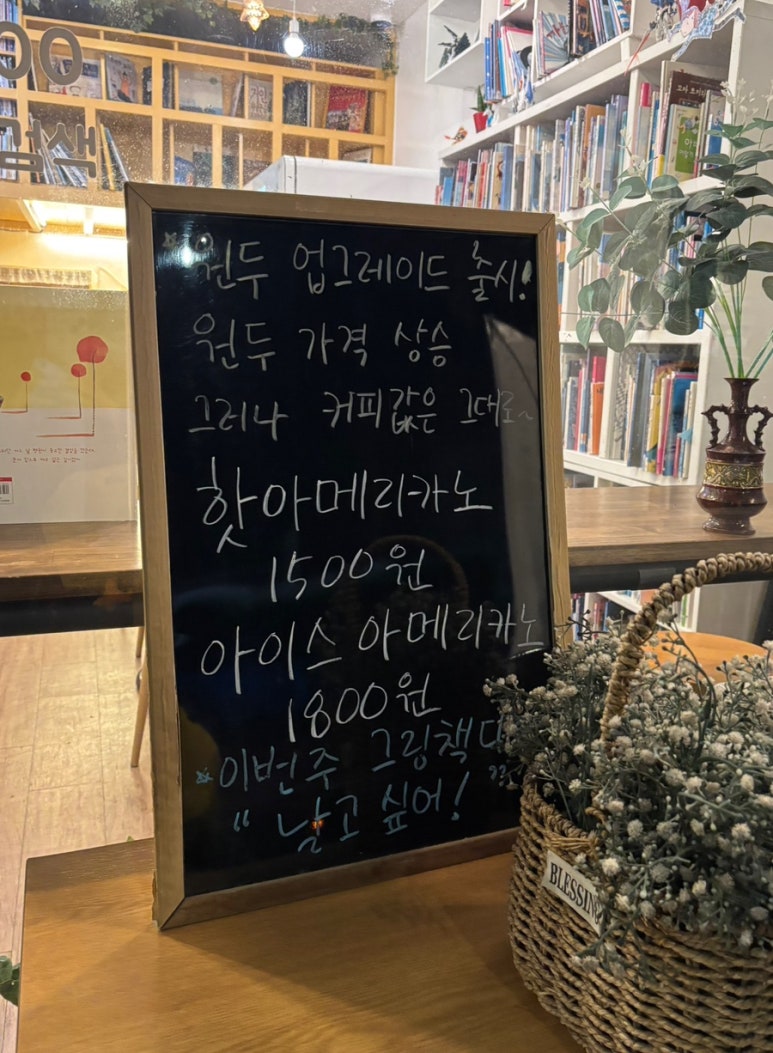 00
검색
* 원두 업그레이드 출시!
원두 가격 상승
그러나 커피값은 그대로~
핫아메리카노
1500원
아이스 아메리카노
1800원
* 이번주 그림책
" 날고 싶어!
BLESSING